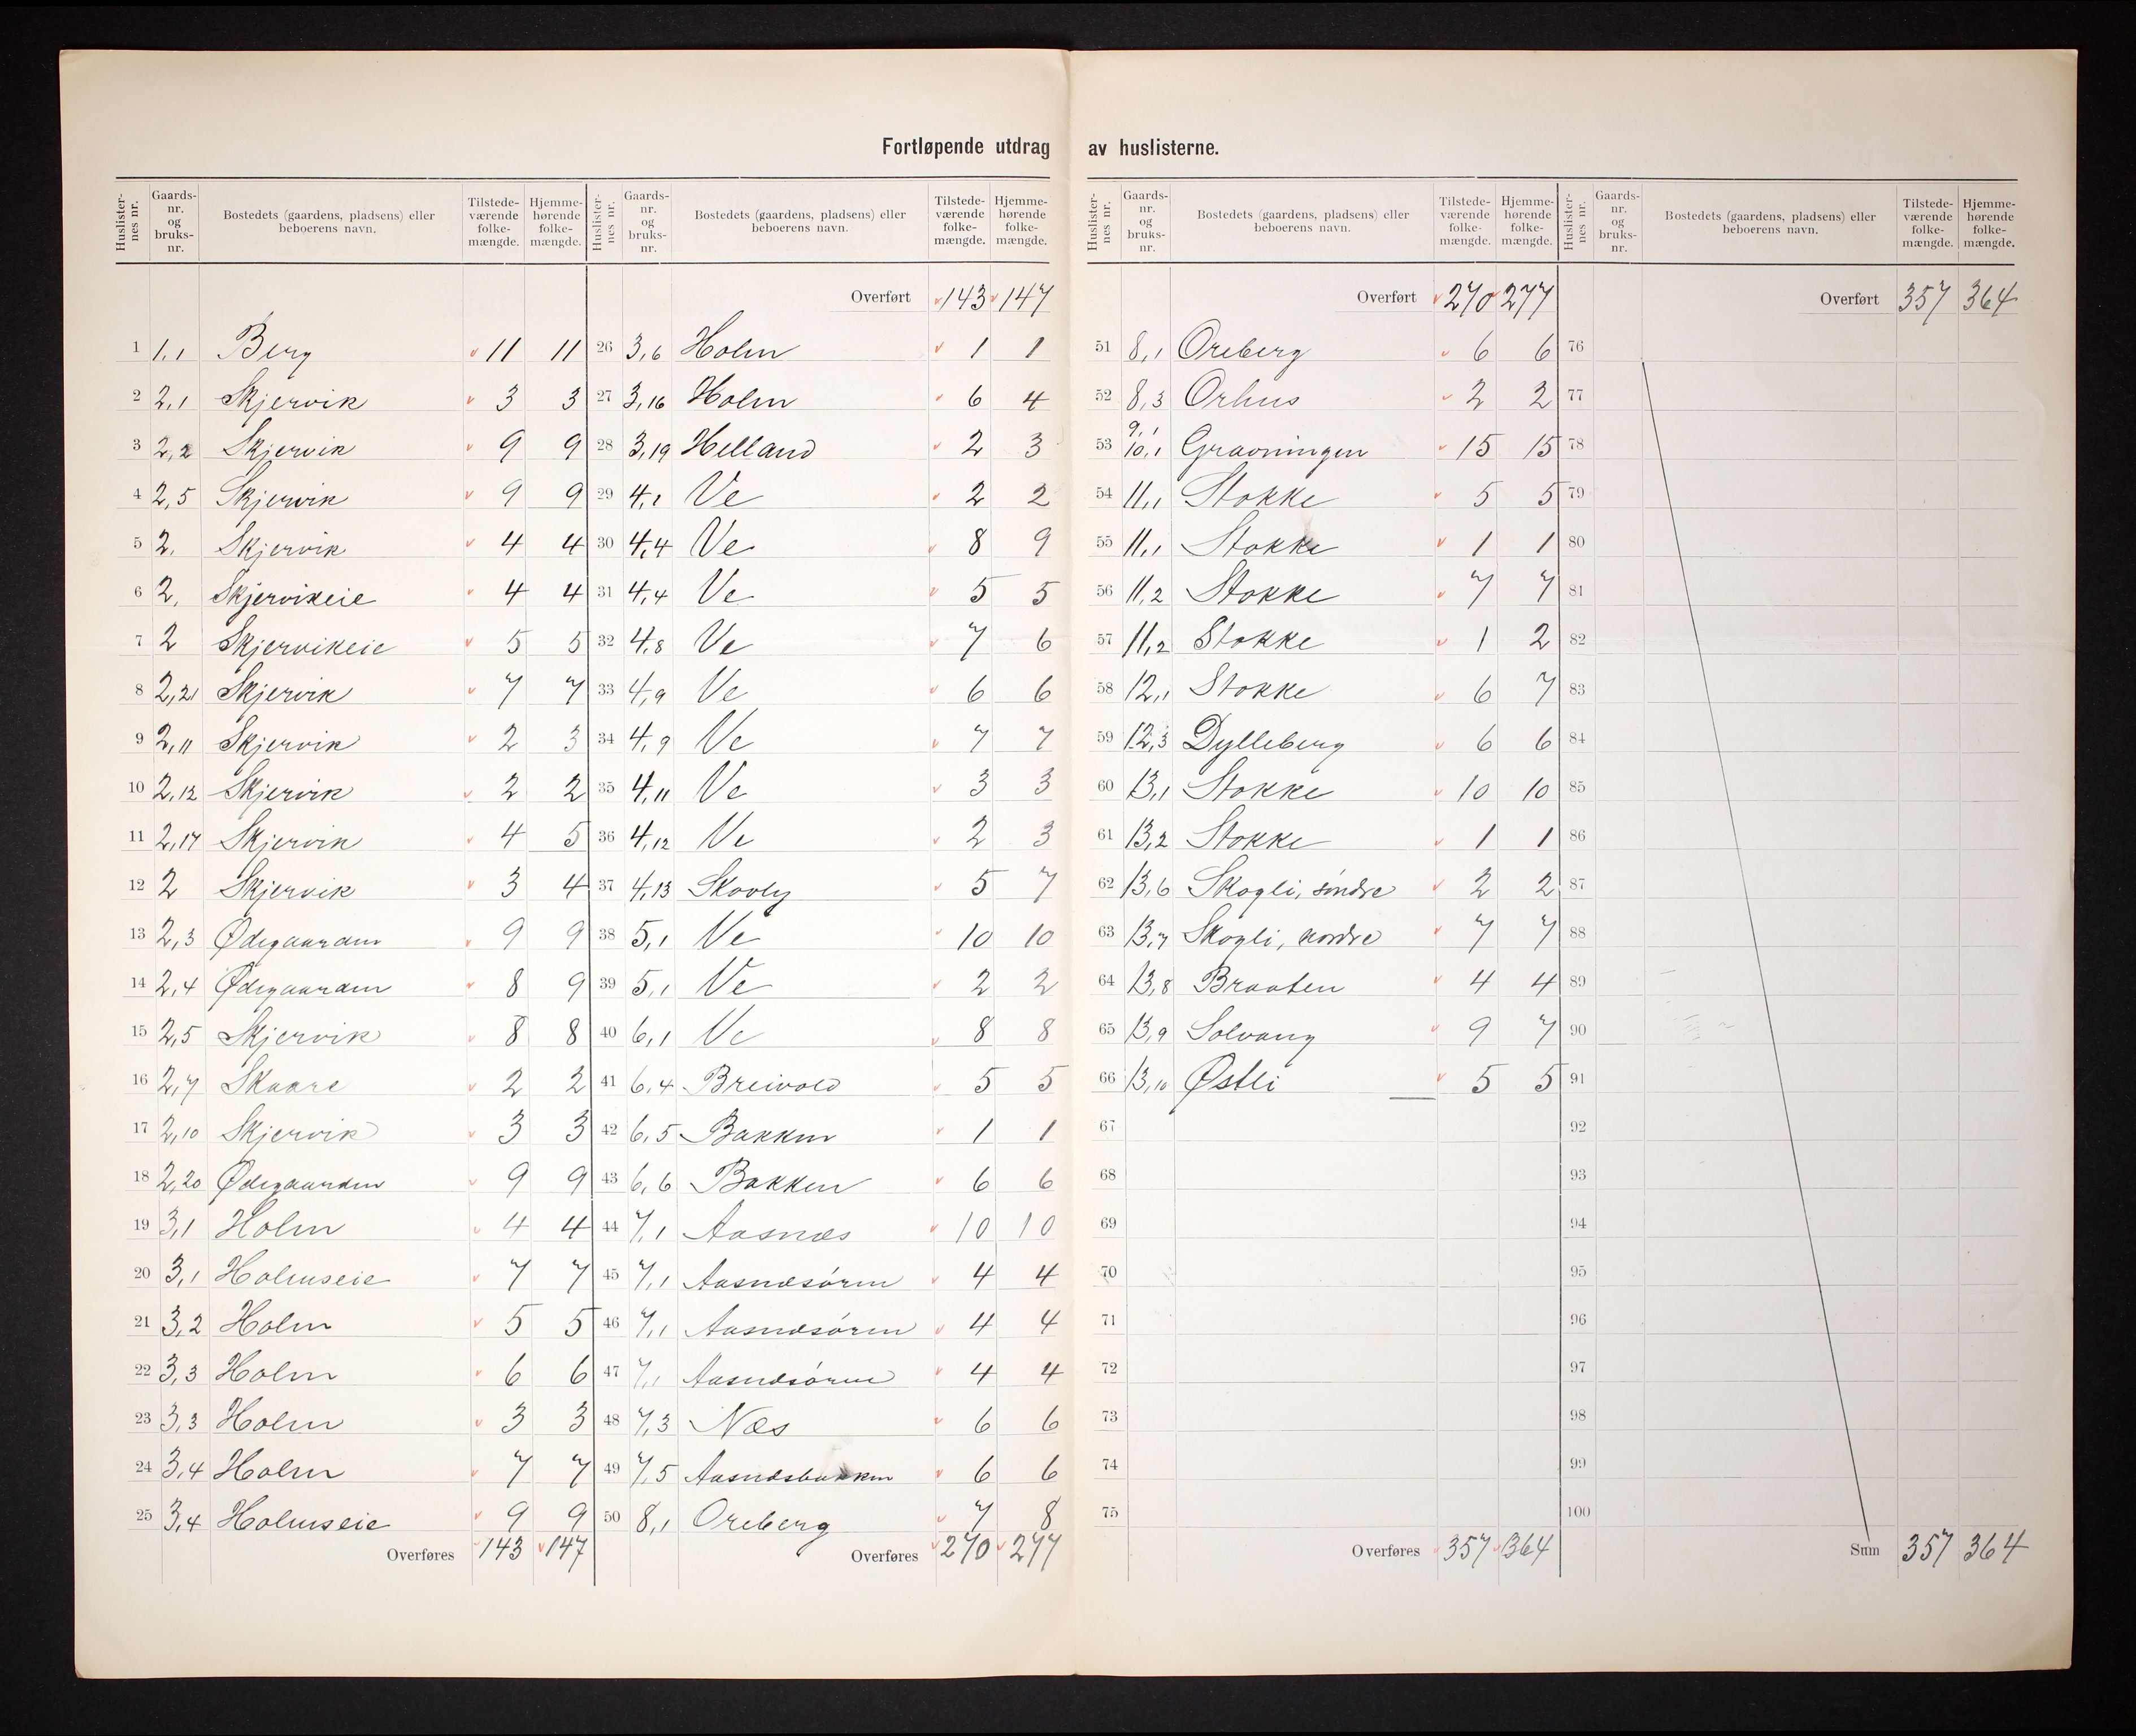 Fortløpende utdrag av huslisterne.
Huslisternes nr. Gaardsnr. og bruksnr. Bostedets (gaardens, pladsens) eller beboerens navn. Tilstedeværende folkemængde. Hjemmehørende folkemængde.
1 1,1 Berg 11 11
2 2,1 Skjervik 3 3
3 2,2 Skjervik 9 9
4 2,5 Skjervik 9 9
5 2, Skjervik 4 4
6 2, Skjervikeie 4 4
7 2 Skjervikeie 5 5
8 2,21 Skjervik 7 7
9 2,11 Skjervik 2 3
10 2,12 Skjervik 2 2
11 2,17 Skjervik 4 5
12 2 Skjervik 3 4
13 2,3 Ødegaarden 9 9
14 2,4 Ødegaarden 8 9
15 2,5 Skjervik 8 8
16 2,7 Skaare 2 2
17 2,10 Skjervik 3 3
18 2,20 Ødegaarden 9 9
19 3,1 Holm 4 4
20 3,1 Holmseie 7 7
21 3,2 Holm 5 5
22 3,3 Holm 6 6
23 3,3 Holm 3 3
24 3,4 Holm 7 7
25 3,4 Holmseie 9 9
Overføres 143 147
Huslisternes nr. Gaardsnr. og bruksnr. Bostedets (gaardens, pladsens) eller beboerens navn. Tilstedeværende folkemængde. Hjemmehørende folkemængde.
Overført 143 147
26 3,6 Holm 1 1
27 3,16 Holm 6 4
28 3,19 Helland 2 3
29 4,1 Ve 2 2
30 4,4 Ve 8 9
31 4,4 Ve 5 5
32 4,8 Ve 7 6
33 4,9 Ve 6 6
34 4,9 Ve 7 7
35 4,11 Ve 3 3
36 4,12 Ve 2 3
37 4,13 Skovly 5 7
38 5,1 Ve 10 10
39 5,1 Ve 2 2
40 6,1 Ve 8 8
41 6,4 Breivold 5 5
42 6,5 Bakken 1 1
43 6,6 Bakken 6 6
44 7,1 Aasnæs 10 10
45 7,1 Aasnæsøren 4 4
46 7,1 Aasnæsøren 4 4
47 7,1 Aasnæsøren 4 4
48 7,3 Næs 6 6
49 7,5 Aasnæsbakken 6 6
50 8,1 Oreberg 7 8
Overføres 270 277
Huslisternes nr. Gaardsnr. og bruksnr. Bostedets (gaardens, pladsens) eller beboerens navn. Tilstedeværende folkemængde. Hjemmehørende folkemængde.
Overført 270 277
51 8,1 Oreberg 6 6
52 8,3 Orhus 2 2
53 9,1 10,1 Gravningen 15 15
54 11,1 Stokke 5 5
55 11,1 Stokke 1 1
56 11,2 Stokke 7 7
57 11,2 Stokke 1 2
58 12,1 Stokke 6 7
59 12,3 Dylleberg 6 6
60 13,1 Stokke 10 10
61 13,2 Stokke 1 1
62 13,6 Skogli, søndre 2 2
63 13,7 Skogli, nordre 7 7
64 13,8 Braaten 4 4
65 13,9 Solvang 9 7
66 13,10 Østli 5 5
67
68
69
70
71
72
73
74
75
Overføres 357 364
Huslisternes nr. Gaardsnr. og bruksnr. Bostedets (gaardens, pladsens) eller beboerens navn. Tilstedeværende folkemængde. Hjemmehørende folkemængde.
Overført 357 364
76
77
78
79
80
81
82
83
84
85
86
87
88
89
90
91
92
93
94
95
96
97
98
99
100
Sum 357 364